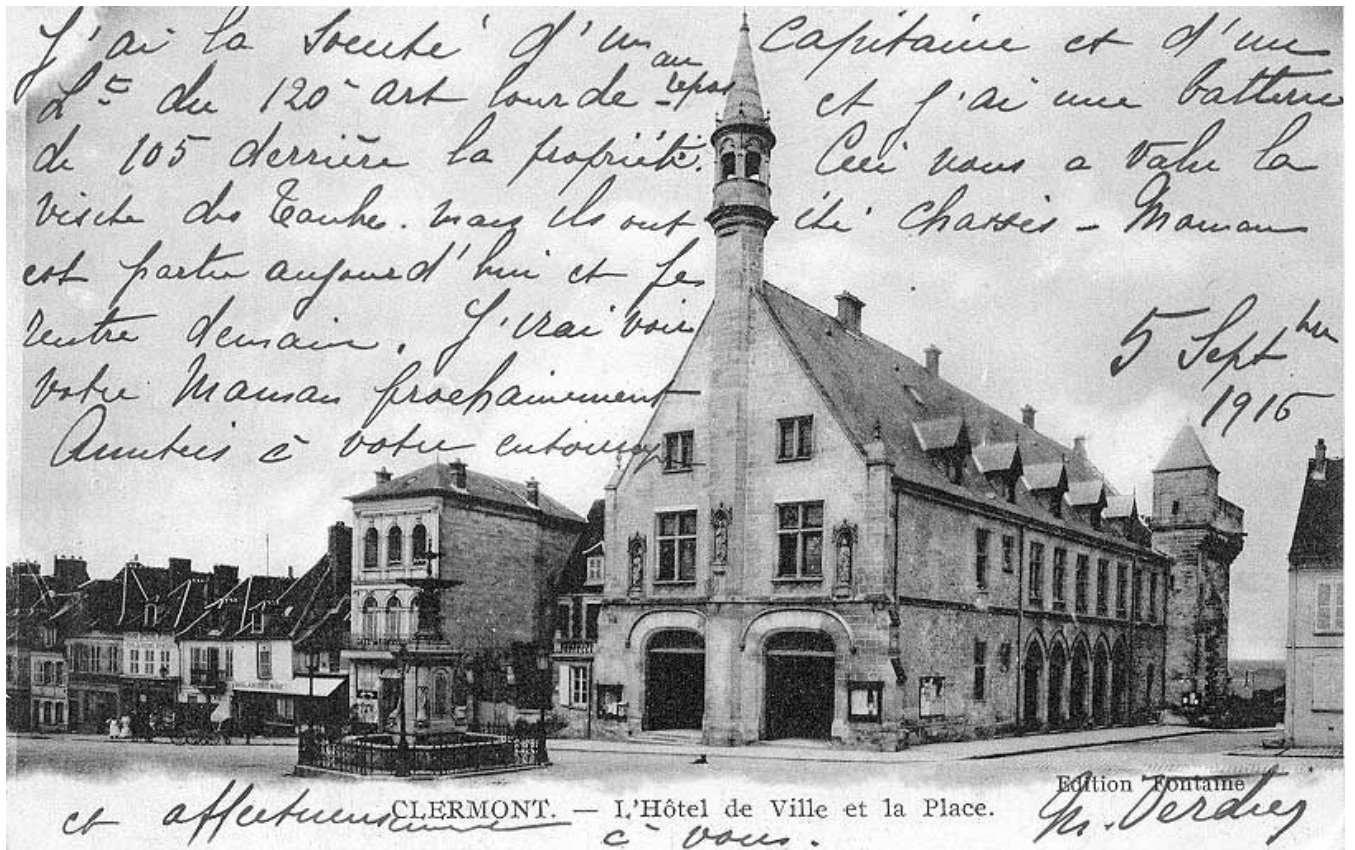 J'ai la Société d'un Capitaine et d'un
Lt du 120e art lourde au repos et j'ai une batterie
de 105 derrière la propriété. Ceci nous a valu la
visite des Taube. mais ils ont été chassés - Maman
est partie aujourd'hui et je
rentre demain. J'irai voir
votre Maman prochainement
Amitiés à votre entourage
5 Septbre
1916
et affectueusement à vous.
CLERMONT. — L'Hôtel de Ville et la Place.
Edition Fontaine